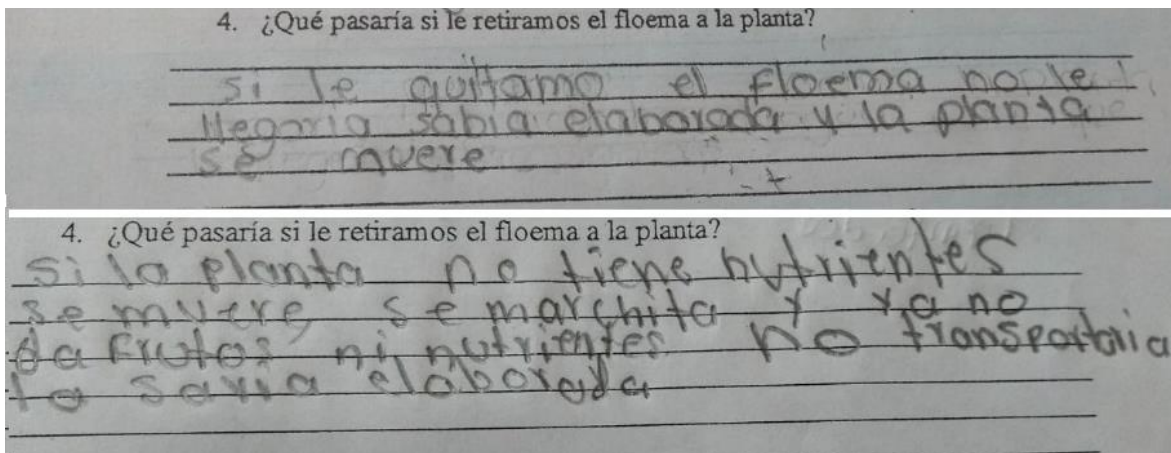 4. ¿Qué pasaría si le retiramos el floema a la planta?
si le quitamo el floema no le
llegaria sabia elaborada y la planta
se muere
4. ¿Qué pasaría si le retiramos el floema a la planta?
si la planta no tiene nutrientes
se muere se marchita y ya no
da frutos ni nutrientes no transportaria
la savia elaborada